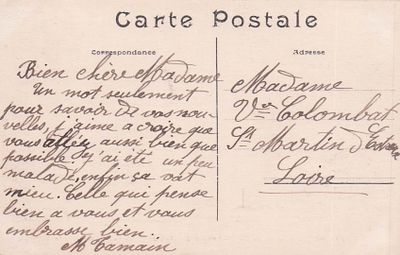 Carte Postale
Correspondance
Bien chère Madame
Un mot seulement
pour savoir de vos nou-
velles, j'aime a croire que
vous allez aussi bien que
possible. J'ai été un peu
malade, enfin ça vat
mieu. Celle qui pense
bien a vous et vous
embrasse bien.
M Tamain
Adresse
Madame
Vve Colombat
St Martin d'Estreaux
Loire